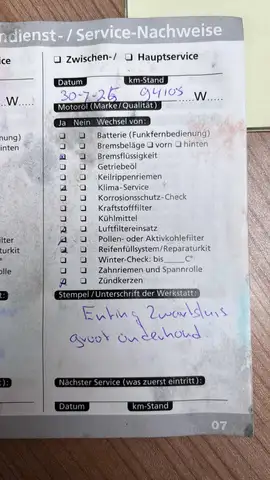 ndienst-/Service-Nachweise
ice
☐ Zwischen-/ ☐ Hauptservice
Datum km-Stand
30-7-25 94105
W W
Motoröl (Marke/Qualität)
Ja Nein Wechsel von:
☐ ☐ Batterie (Funkfernbedienung)
☐ ☐ Bremsbeläge ☐ vorn ☐ hinten
☒ ☐ Bremsflüssigkeit
☐ ☐ Getriebeöl
☐ ☐ Keilrippenriemen
☒ ☐ Klima-Service
☐ ☐ Korrosionsschutz-Check
☐ ☐ Kraftstofffilter
☐ ☐ Kühlmittel
☒ ☐ Luftfiltereinsatz
☒ ☐ Pollen- oder Aktivkohlefilter
☐ ☐ Reifenfüllsystem/Reparaturkit
☐ ☐ Winter-Check: bis____C°
☐ ☐ Zahnriemen und Spannrolle
☒ ☐ Zündkerzen
Stempel/Unterschrift der Werkstatt:
Enting Zwartsluis
groot onderhoud
Nächster Service (was zuerst eintritt):
Datum km-Stand
07